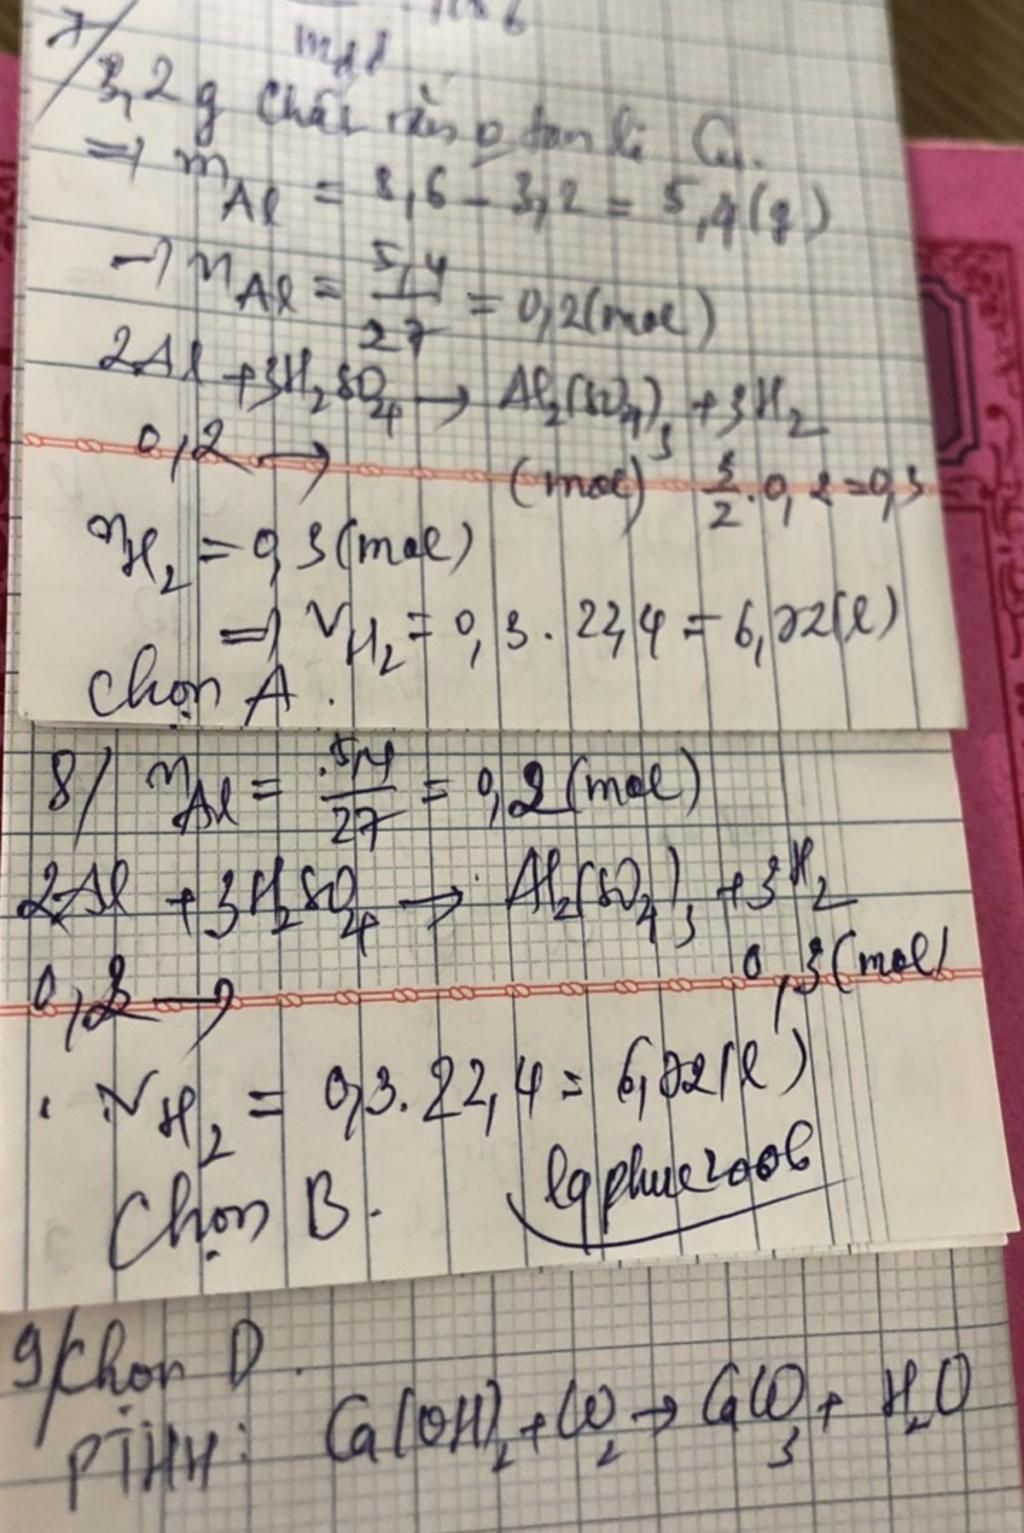 7/
mdd
3,2 g chất rắn ko tan là Cu.
=> mAl = 8,6 - 3,2 = 5,4(g)
→ nAl = 5,4/27 = 0,2(mol)
2Al + 3H2SO4 → Al2(SO4)3 + 3H2
0,2 → (mol) 3/2 . 0,2 = 0,3
nH2 = 0,3(mol)
=> VH2 = 0,3 . 22,4 = 6,72(l)
Chọn A.
8/ nAl = 5,4/27 = 0,2(mol)
2Al + 3H2SO4 → Al2(SO4)3 + 3H2
0,2 → 0,3(mol)
VH2 = 0,3.22,4 = 6,72(l)
Chọn B.
lqphuc2006
9/ Chọn D.
PTHH: Ca(OH)2 + CO2 → CaCO3 + H2O